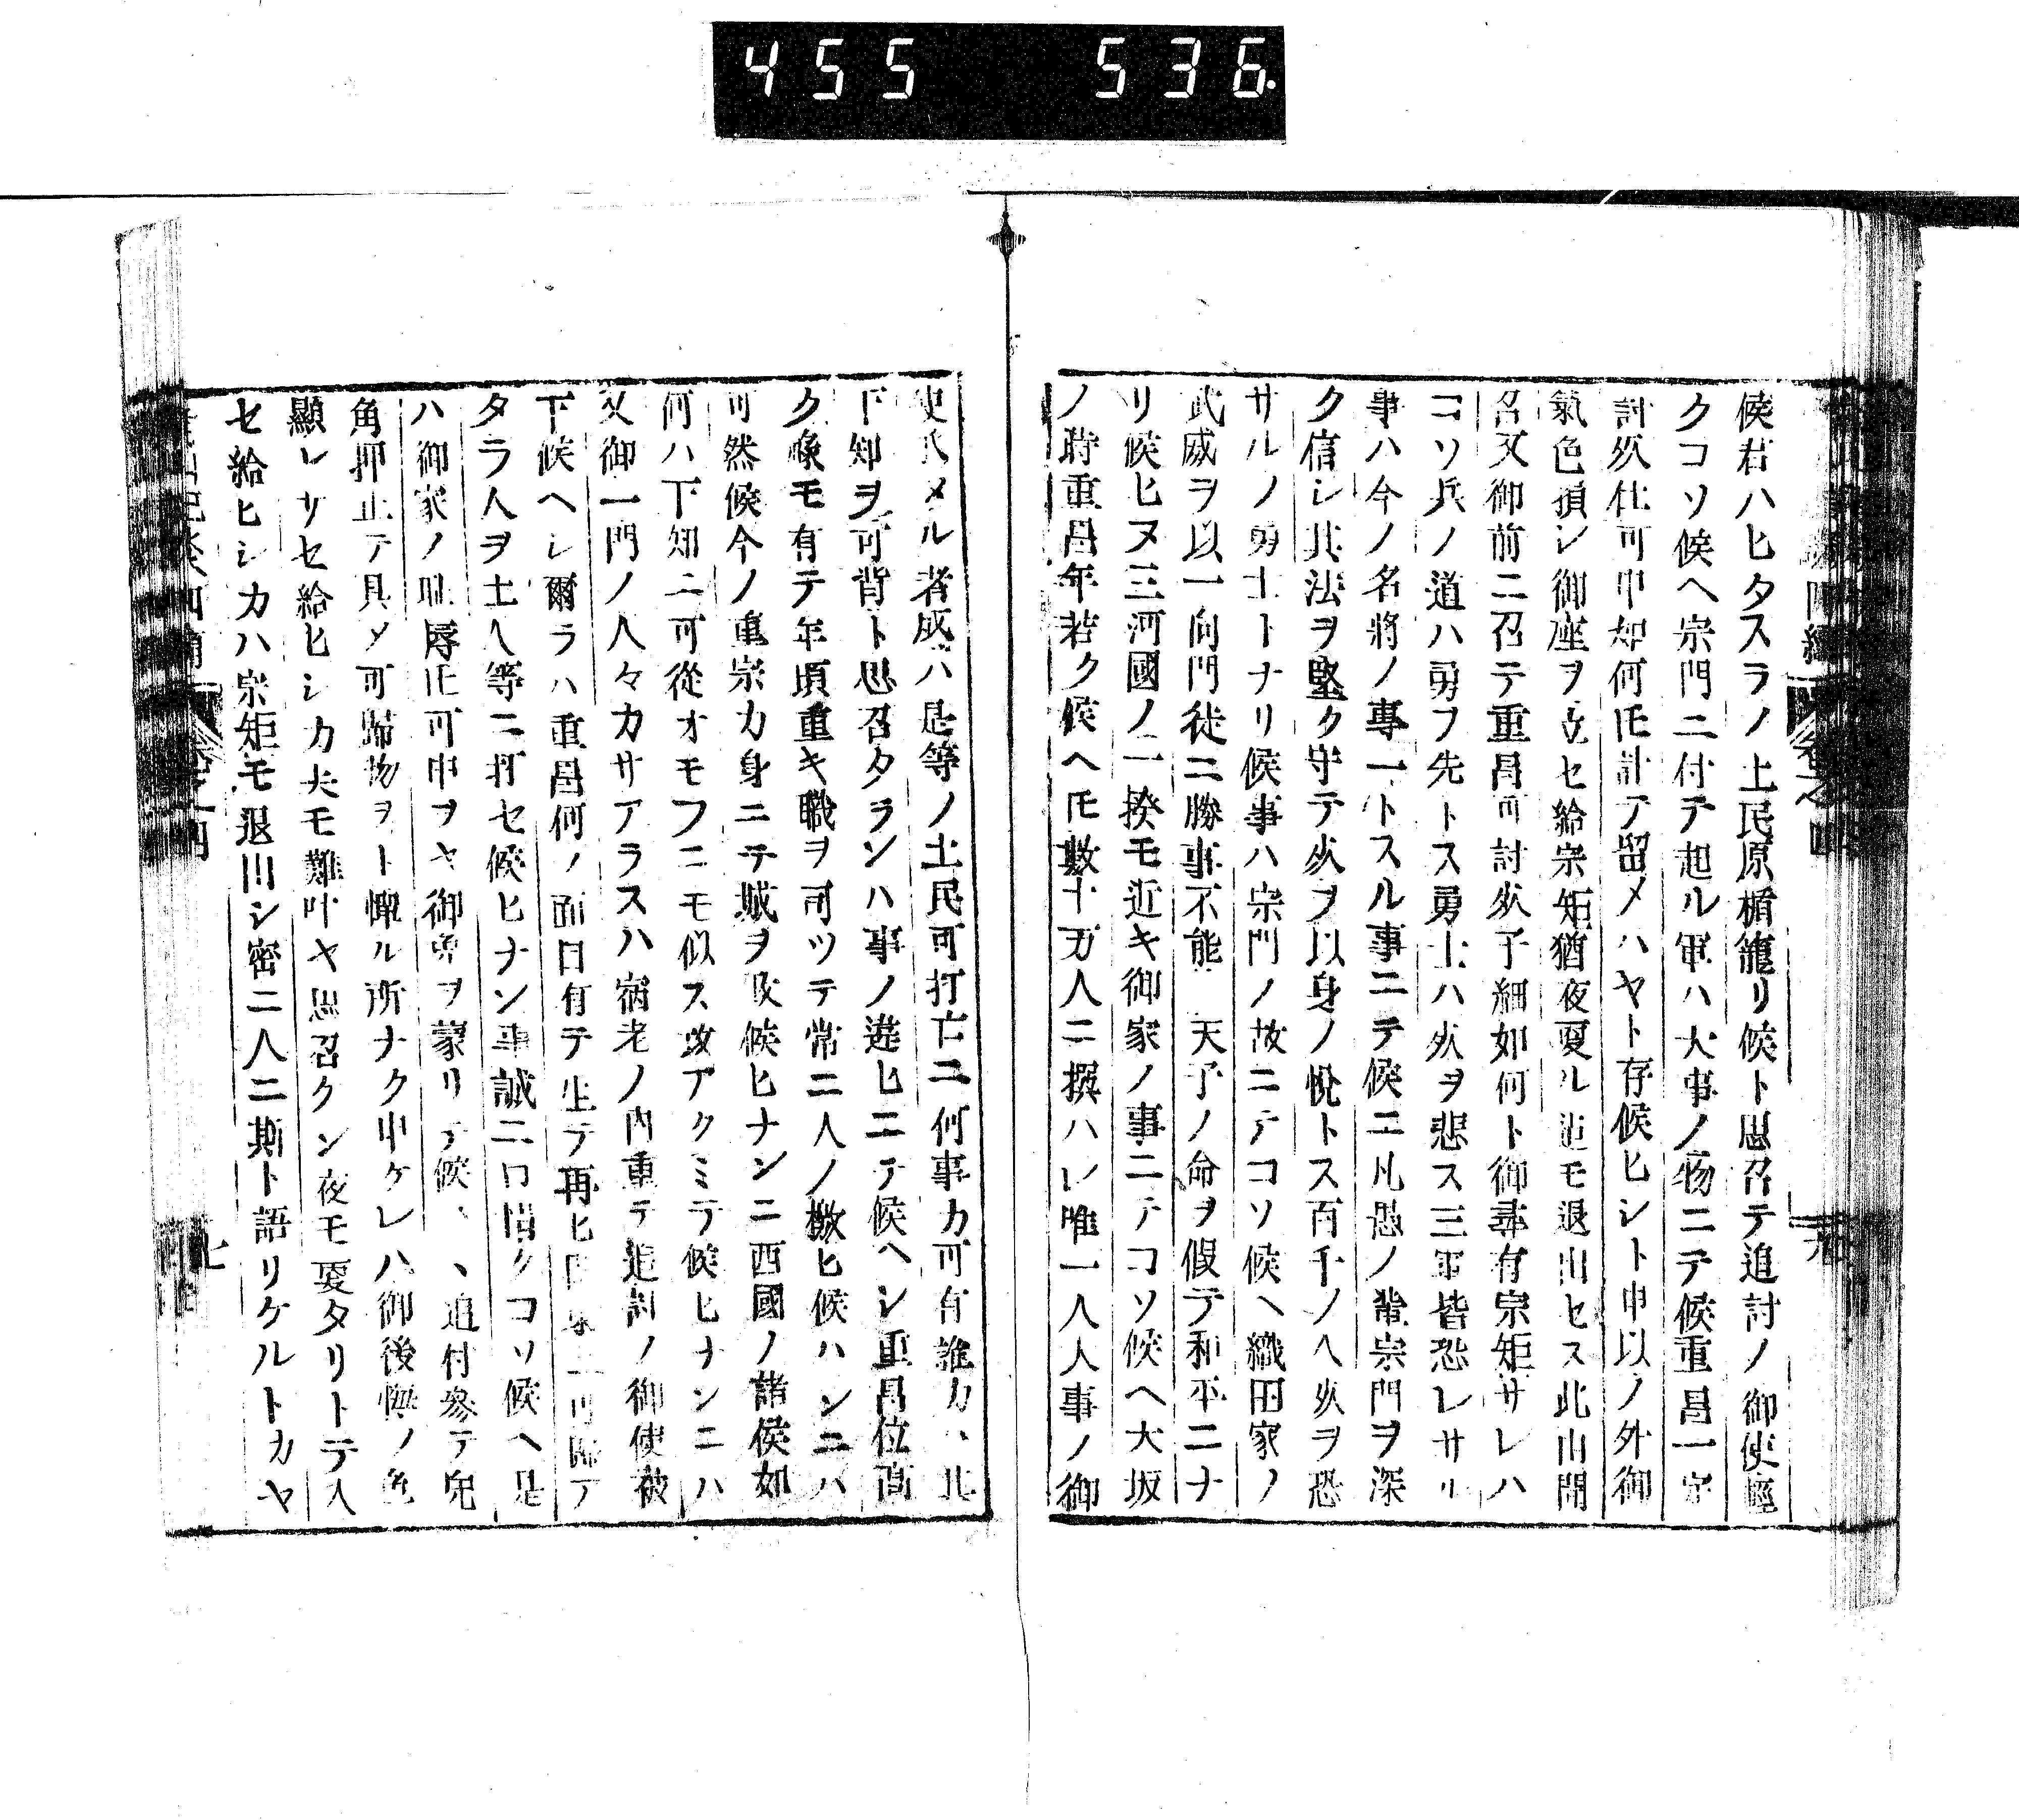 455 536
候君ハヒタスラノ土民原楯籠リ候ト思召テ追討ノ御使軽
クコソ候ヘ宗門ニ付テ起ル軍ハ大事ノ物ニテ候重昌一定
討死仕可申如何氐計テ留メハヤト存候ヒシト申以ノ外御
氣色損シ御座ヲ立セ給宗矩猶夜更ル迠モ退出セス此由聞
召又御前ニ召テ重昌可討死子細如何ト御尋有宗矩サレハ
コソ兵ノ道ハ勇ヲ先トス勇士ハ死ヲ悲ス三軍皆恐レサル
事ハ今ノ名將ノ專一トスル事ニテ候ニ凡愚ノ輩宗門ヲ深
ク信シ其法ヲ堅ク守テ死ヲ以身ノ悅トス百千ノ人死ヲ恐
サルノ勇士トナリ候事ハ宗門ノ故ニテコソ候ヘ織田家ノ
武威ヲ以一向門徒ニ勝事不能 天子ノ命ヲ假テ和平ニナ
リ候ヒヌ三河國ノ一揆モ近キ御家ノ事ニテコソ候ヘ大坂
ノ時重昌年若ク候ヘ氐數十万人ニ撰ハレ唯一人人事ノ御
使氏メル者成ハ是等ノ土民可打亡ニ何事カ可有誰カハ其
下知ヲ可背ト思召タランハ事ノ違ヒニテ候ヘシ重昌位高
ク祿モ有テ年頃重キ職ヲ司ツテ常ニ人ノ敬ヒ候ハンニハ
可然候今ノ重宗カ身ニテ城ヲ攻候ヒナンニ西國ノ諸侯如
何ハ下知ニ可從オモフニモ似ス攻アクミテ候ヒナンニハ
又御一門ノ人々カサアラスハ宿老ノ内重テ追討ノ御使被
下候ヘシ爾ラハ重昌何ノ面目有テ生テ再ヒ 可歸ア
タラ人ヲ土人等ニ打セ候ヒナン事誠ニ口惜クコソ候ヘ是
ハ御家ノ耻辱正可申ヲヤ御免ヲ蒙リテ候ハヽ追付參テ兎
角押止テ具メ可歸物ヲト憚ル所ナク申ケレハ御後悔ノ色
顯レサセ給ヒシカ夫モ難叶ヤ思召クン夜モ更タリトテ入
セ給ヒシカハ宗矩モ退出シ密ニ人ニ斯ト語リケルトカヤ
七